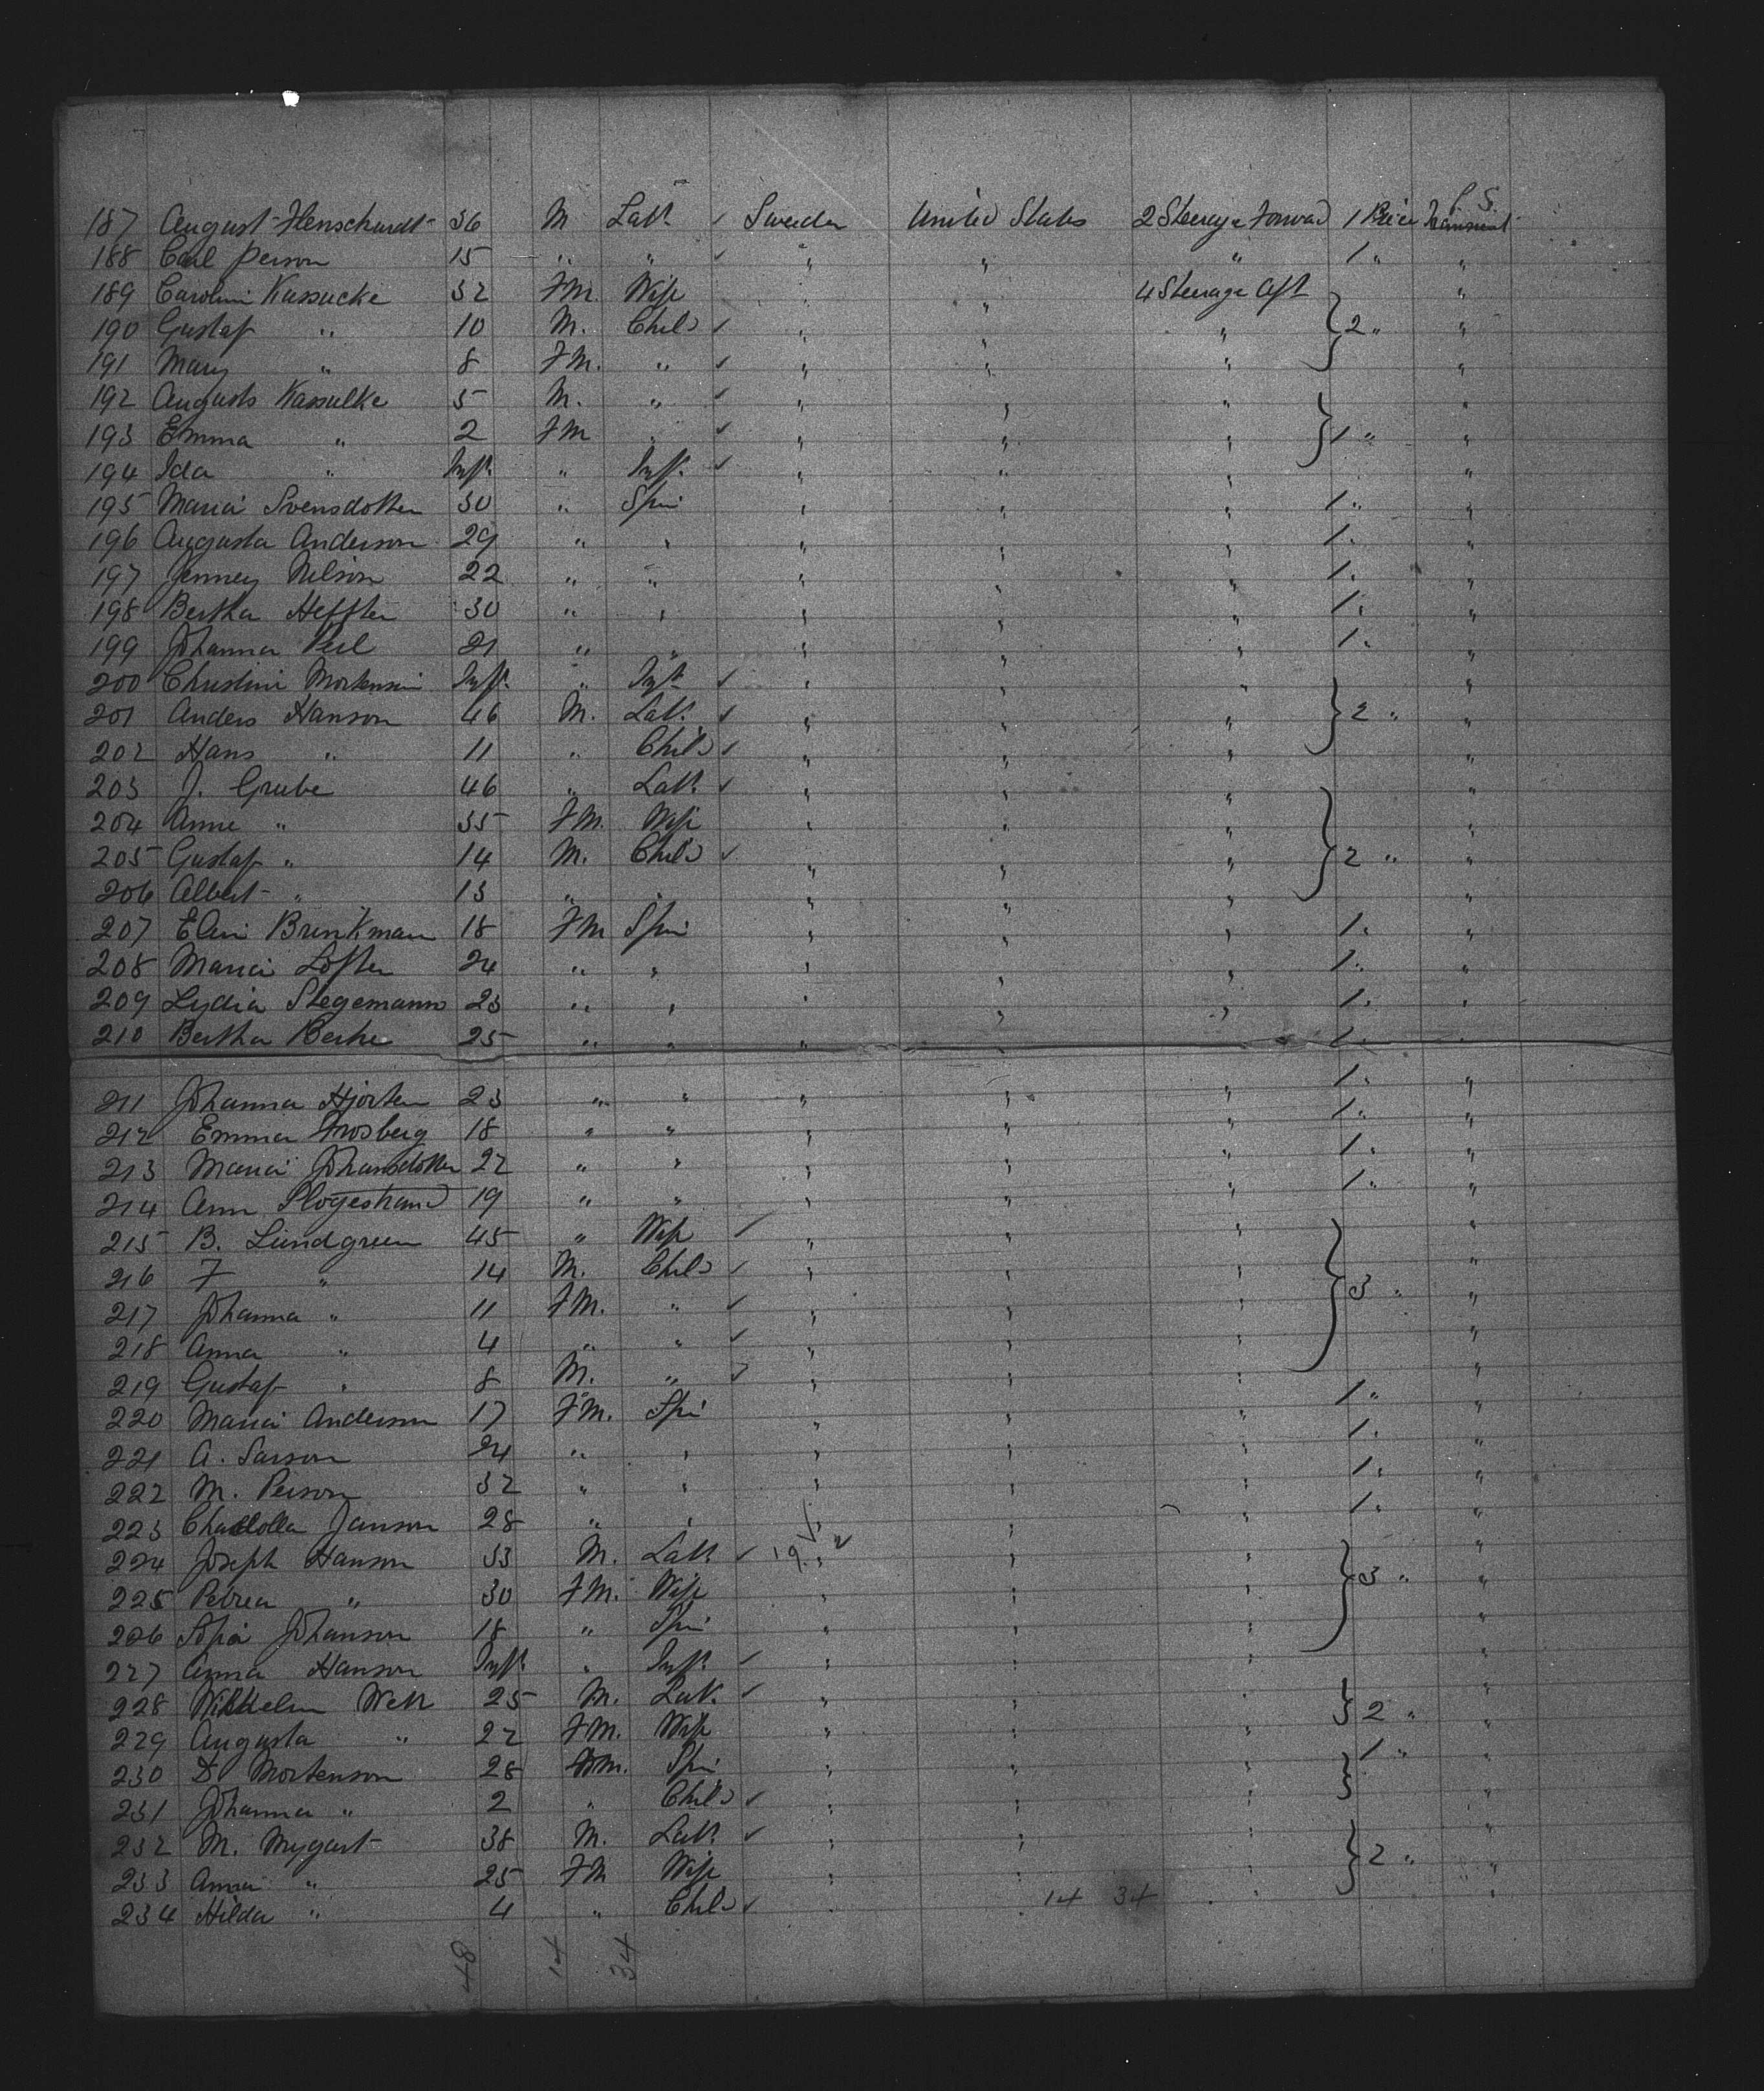 P. S.
187 August Henschardt 36 M Labr ✓ Sweden United States 2 Steerage Forward 1 Piece
188 Carl Person 15 " " ✓ " " " 1 " "
189 Carolini Kassucke 32 FM. Wife " " 4 Steerage Aft "
190 Gustaf " 10 M. Child ✓ " " " 2 " "
191 Mary " 8 FM. " ✓ " " " "
192 Augusts Kassulke 5 M. " ✓ " " " "
193 Emma " 2 FM " ✓ " " " 1 " "
194 Ida " Inft. " Inft. ✓ " " " "
195 Maria Svensdotter 30 " Spin " " " 1 " "
196 Augusta Anderson 29 " " " " " 1 " "
197 Jenney Nilson 22 " " " " " 1 " "
198 Bertha Heffter 30 " " " " " 1 " "
199 Johanna Peil 21 " " " " " 1 " "
200 Christini Mortensin Inft. " Inft ✓ " " " "
201 Anders Hanson 46 M. Labr. ✓ " " " 2 " "
202 Hans " 11 " Child ✓ " " " "
203 J. Grube 46 " Labr. ✓ " " " "
204 Anne " 35 FM. Wife " " " "
205 Gustaf " 14 M. Child ✓ " " " 2 " "
206 Albert " 13 " " " " " "
207 Elini Brinkman 18 FM Spin " " " 1 " "
208 Maria Lofter 24 " " " " " 1 " "
209 Lydia Stegemann 23 " " " " " 1 " "
210 Bertha Berke 25 " " " " " 1 " "
211 Johanna Hjorten 23 " " " " " 1 " "
212 Emma Frosberg 18 " " " " " 1 " "
213 Maria Johansdotter 22 " " " " " 1 " "
214 Ann 19 " " " " " 1 " "
215 B. Lundgreen 45 " Wife ✓ " " " "
216 F " 14 M. Child ✓ " " " "
217 Johanna " 11 FM. " ✓ " " " 3 " "
218 Anna " 4 " " ✓ " " " "
219 Gustaf " 8 M. " ✓ " " " "
220 Maria Anderson 17 FM. Spi " " " 1 " "
221 A. Larson 24 " " " " " 1 " "
222 M. Person 32 " " " " " 1 " "
223 Charlotta Janson 28 " " " " " 1 " "
224 Joseph Hanson 33 M. Labr ✓ 19 " " " "
225 Petrea " 30 FM. Wife " " " 3 " "
226 Sofia Johanson 18 " Spin " " " "
227 Anna Hanson Inft. " Inft. ✓ " " " "
228 Wilhelm Weth 25 M. Labr. ✓ " " " 2 " "
229 Augusta " 22 FM. Wife " " " "
230 D Mortenson 28 FM. Spin " " " 1 " "
231 Johanna " 2 " Child ✓ " " " "
232 M. Mygart 38 M. Labr. ✓ " " " "
233 Anna " 25 FM Wife " " " 2 " "
234 Hilda " 4 " Child ✓ " " 14 34 " "
48 14 34